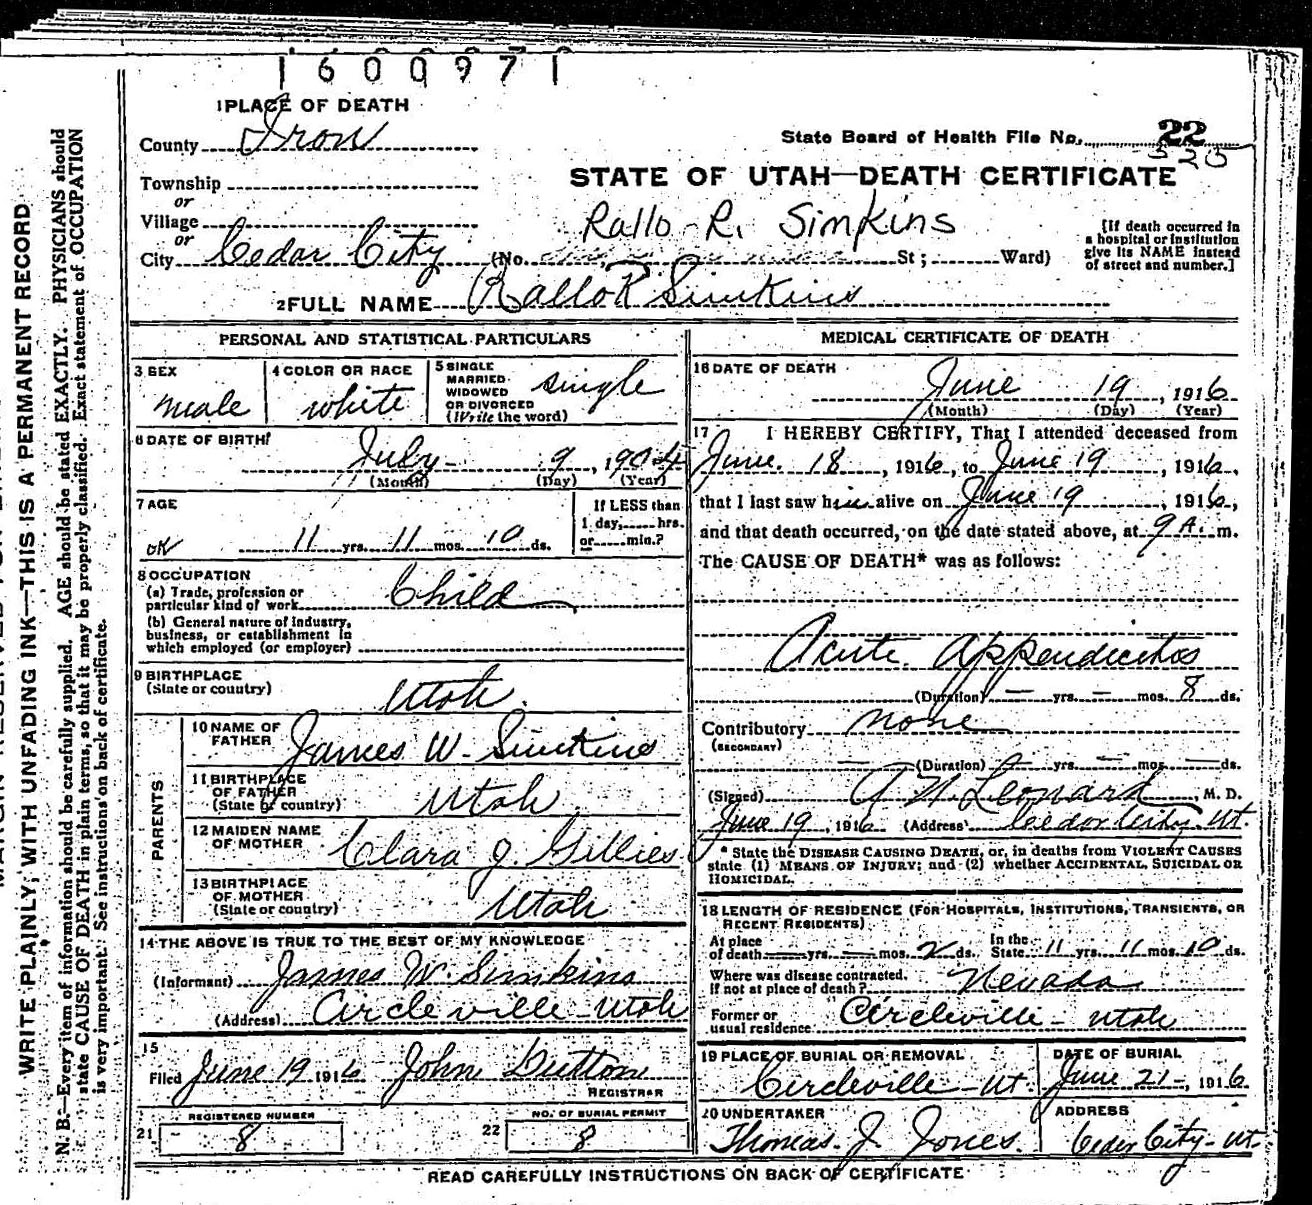 1600971
1 PLACE OF DEATH
County Iron
State Board of Health File No. 22
Township
STATE OF UTAH—DEATH CERTIFICATE
or
Village
Rallo R. Simkins
or
City Cedar City (No. St; Ward)
[If death occurred in a hospital or institution give its NAME instead of street and number.]
2 FULL NAME Rallo R Simkins
PERSONAL AND STATISTICAL PARTICULARS
3 SEX male
4 COLOR OR RACE white
5 SINGLE MARRIED WIDOWED OR DIVORCED (Write the word) single
6 DATE OF BIRTH
July 9, 1904
(Month) (Day) (Year)
7 AGE
OK 11 yrs. 11 mos. 10 ds.
If LESS than 1 day, hrs. or min.?
8 OCCUPATION
(a) Trade, profession or particular kind of work Child
(b) General nature of industry, business, or establishment in which employed (or employer)
9 BIRTHPLACE
(State or country) Utah
PARENTS
10 NAME OF FATHER James W. Simkins
11 BIRTHPLACE OF FATHER (State or country) Utah
12 MAIDEN NAME OF MOTHER Clara J. Gillies
13 BIRTHPLACE OF MOTHER (State or country) Utah
14 THE ABOVE IS TRUE TO THE BEST OF MY KNOWLEDGE
(Informant) James W. Simkins
(Address) Circleville - Utah
15
Filed June 19 1916 John Dutton
REGISTRAR
REGISTERED NUMBER
21 8
NO. OF BURIAL PERMIT
22 8
MEDICAL CERTIFICATE OF DEATH
16 DATE OF DEATH
June 19, 1916
(Month) (Day) (Year)
17 I HEREBY CERTIFY, That I attended deceased from
June 18, 1916, to June 19, 1916,
that I last saw him alive on June 19, 1916,
and that death occurred, on the date stated above, at 9 A. m.
The CAUSE OF DEATH* was as follows:
Acute Appendicitos
(Duration) — yrs. — mos. 8 ds.
Contributory none
(SECONDARY)
(Duration) — yrs. — mos. — ds.
(Signed) A N. Leonard, M. D.
June 19, 1916 (Address) Cedar City, Ut.
* State the DISEASE CAUSING DEATH, or, in deaths from VIOLENT CAUSES
state (1) MEANS OF INJURY; and (2) whether ACCIDENTAL, SUICIDAL OR
HOMICIDAL.
18 LENGTH OF RESIDENCE (FOR HOSPITALS, INSTITUTIONS, TRANSIENTS, OR RECENT RESIDENTS)
At place of death — yrs. — mos. 2 ds. In the State 11 yrs. 11 mos. 10 ds.
Where was disease contracted, If not at place of death? Nevada
Former or usual residence Circleville - Utah
19 PLACE OF BURIAL OR REMOVAL Circleville - Ut.
DATE OF BURIAL June 21 -, 1916
20 UNDERTAKER Thomas. J. Jones.
ADDRESS Cedar City - Ut.
READ CAREFULLY INSTRUCTIONS ON BACK OF CERTIFICATE
WRITE PLAINLY, WITH UNFADING INK—THIS IS A PERMANENT RECORD
N. B.—Every item of information should be carefully supplied. AGE should be stated EXACTLY. PHYSICIANS should
state CAUSE OF DEATH in plain terms, so that it may be properly classified. Exact statement of OCCUPATION
is very important. See instructions on back of certificate.